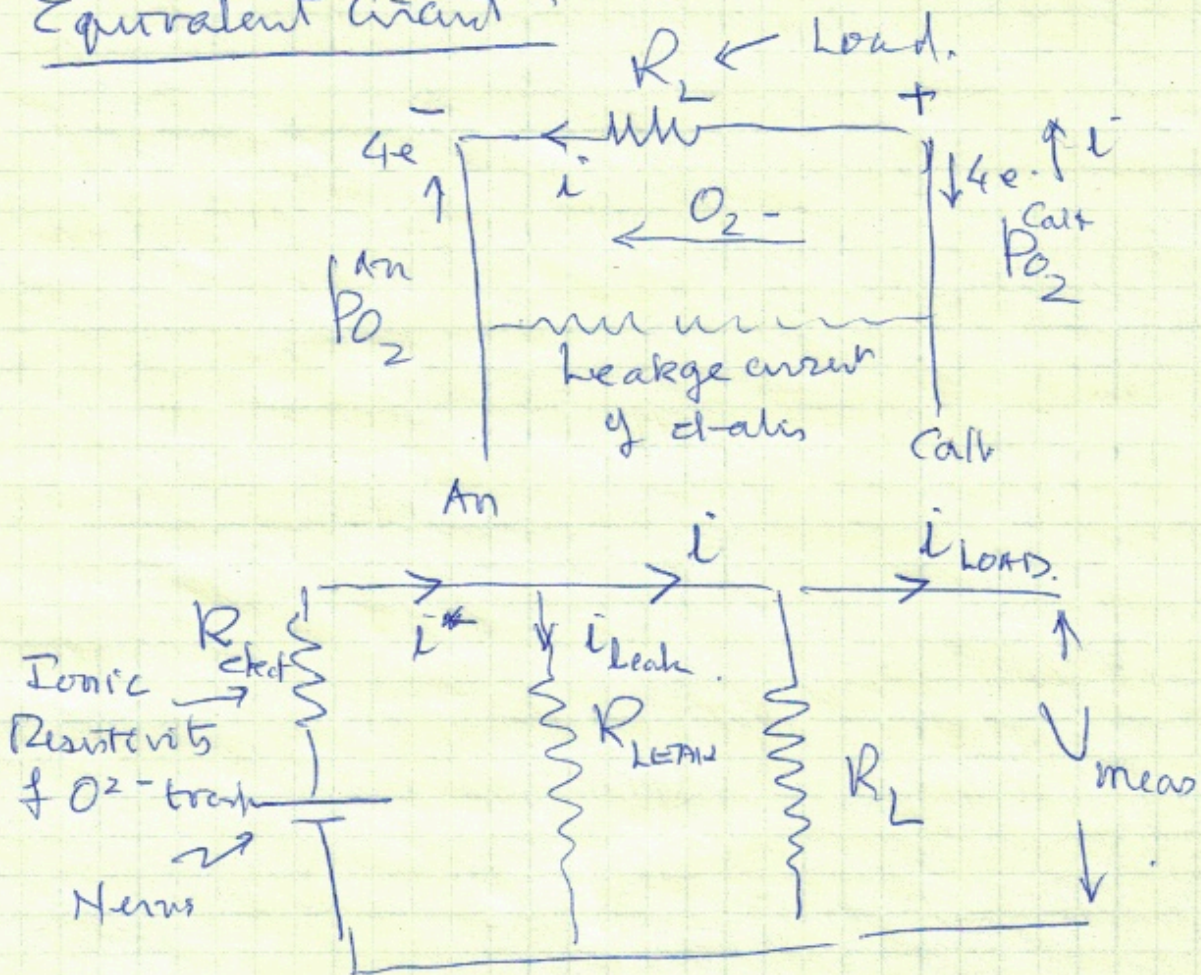 Equivalent Circuit
R_L ← Load.
- +
4e i 4e i
O_2 -
P_O_2^An P_O_2^Cath
Leakge current
of
An Cath
i i LOAD.
i* i leak.
R elect
Ionic
Resistivity
of O^2- transp
R_LEAK R_L V meas
Nerns